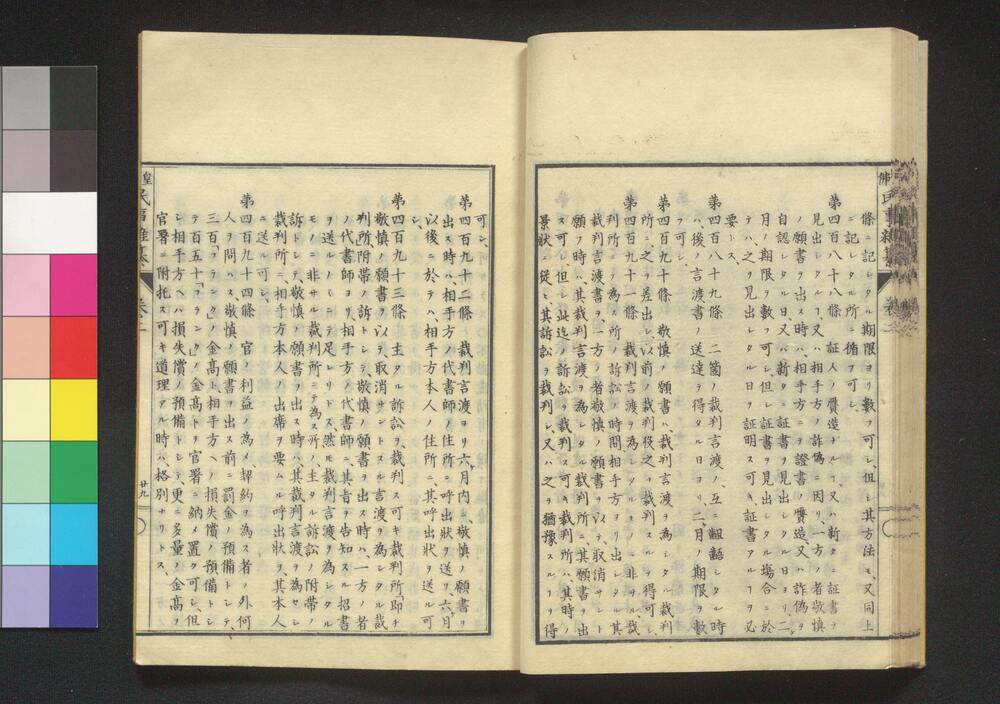 條ニ記シタル期限ヨリ數フ可シ、但シ其方法モ、又同上
ニ記シタル所ニ循フ可シ、
第四百八十八條 証人ノ贋造ナルヿ、又ハ新タニ証書ヲ
見出シタルヿ、又ハ相手方ノ詐偽ニ因リ、一方ノ者敬愼
ノ願書ヲ出ス時ハ、相手方ニテ證書ノ贋造、又ハ詐偽ヲ
自認シタル日、又ハ新タニ証書ヲ見出シタル日ヨリ、二
月ノ期限ヲ數フ可シ、但シ証書ヲ見出シタル塲合ニ於
テハ、之ヲ見出シタル日ヲ証明ス可キ証書アルヿヲ必
要トス、
第四百八十九條 二箇ノ裁判言渡ノ、互ニ齟齬シタル時
ハ、後ノ言渡書ノ送達ヲ得タル日ヨリ、二月ノ期限ヲ數
フ可シ、
第四百九十條 敬愼ノ願書ハ、裁判言渡ヲ為シタル裁判
所ニ、之ヲ差出シ、以前ノ裁判役之ヲ裁判スルヿヲ得可シ、
第四百九十一條 裁判言渡ヲ為シタルニ非サル裁
判所ニ、為ス所ノ訴訟ノ時間相手方ヨリ出シタル其
裁判言渡書ヲ、一方ノ者敬愼ノ願書ヲ以テ、取消サント
願フ時ハ、其裁判言渡ヲ為シタル裁判所ニ、其願書ヲ出
ス可シ、但シ此迄ノ訴訟ヲ裁判ス可キ裁判所ハ、其時ノ
景狀ニ從ヒ、其訴訟ヲ裁判シ、又ハ之ヲ猶豫スルヿヲ得
可シ、
第四百九十二條 裁判言渡ヨリ六月内ニ、敬愼ノ願書ヲ
出ス時ハ、相手方ノ代書師ノ住所ニ呼出狀ヲ送リ、六月
以後ニ於テハ、相手方本人ノ住所ニ、其呼出狀ヲ送ル可
シ、
第四百九十三條 主タル訴訟ヲ、裁判ス可キ裁判所「即チ
敬愼ノ願書ヲ以テ、取消サントスル言渡ヲ為シタル裁
判所」附帶ノ訴トシテ、敬愼ノ願書ヲ出ス時ハ、一方ノ者
ノ代書師ヨリ、相手方ノ代書師ニ、其旨ヲ告知スル招書
ヲ送ルノミニテ足レリトス、然モ裁判言渡ヲ為シタル
モノニ非サル裁判所ニテ為ス所ノ、主タル訴訟ノ附帶ノ
訴トシテ、敬愼ノ願書ヲ出ス時ハ、其裁判言渡ヲ為セシ
裁判所ニ、相手方本人ノ出席ヲ要ムル呼出狀ヲ、其本人
ニ送ル可シ、
第四百九十四條 官ノ利益ノ為メ、契約ヲ為ス者ノ外、何
人ヲ問ハス敬愼ノ願書ヲ出ス前ニ、罰金ノ預備トシテ、
三百「フランク」ノ金高ト、相手方ヘノ損失償ノ預備トシ
テ百五十「フランク」ノ金高トヲ官署ニ納メ置ク可シ、但
シ相手方ヘハ損失償ノ預備トシテ、更ニ多量ノ金高ヲ
官署ニ附托ス可キ道理アル時ハ、格別ナリトス、
卷二
廿九